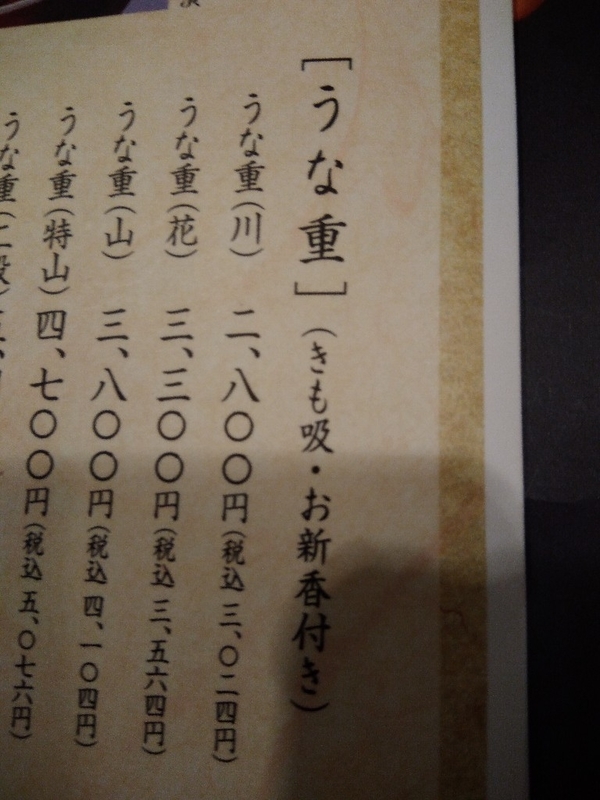 ［うな重］（きも吸・お新香付き）
うな重（川） 二、八〇〇円（税込 三、〇二四円）
うな重（花） 三、三〇〇円（税込 三、五六四円）
うな重（山） 三、八〇〇円（税込 四、一〇四円）
うな重（特山） 四、七〇〇円（税込 五、〇七六円）
うな重（二段）